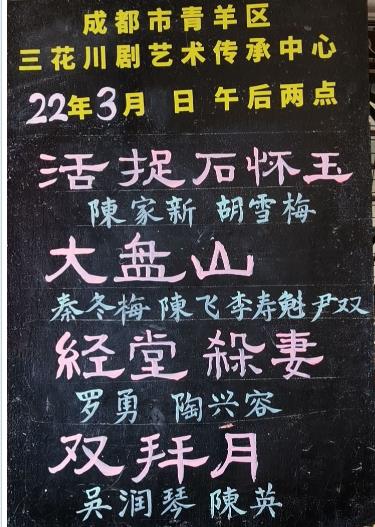 成都市青羊区
三花川剧艺术传承中心
22年3月 日 午后两点
活捉石怀玉
陳家新 胡雪梅
大盘山
秦冬梅 陳飞 李寿魁 尹双
経堂杀妻
罗勇 陶兴容
双拜月
吴润琴 陳英